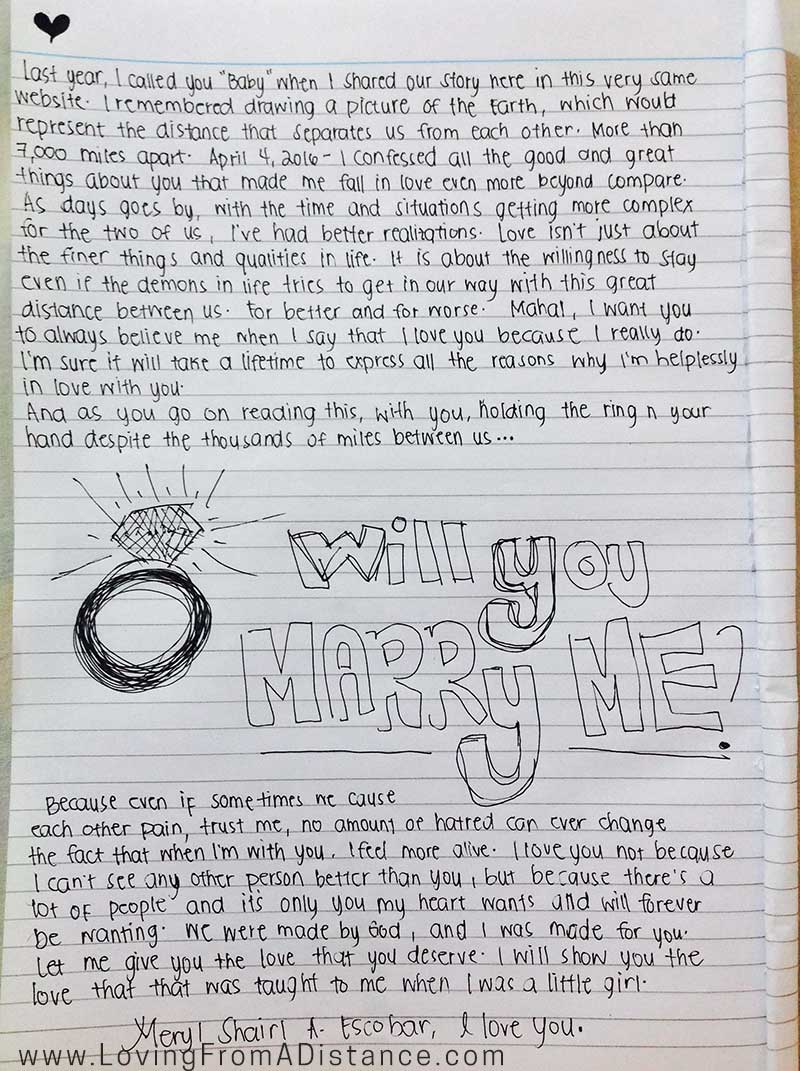 Last year, I called you "Baby" when I shared our story here in this very same
website. I remembered drawing a picture of the Earth, which would
represent the distance that separates us from each other. More than
7,000 miles apart. April 4, 2016 - I confessed all the good and great
things about you that made me fall in love even more beyond compare.
As days goes by, with the time and situations getting more complex
for the two of us, I've had better realizations. Love isn't just about
the finer things and qualities in life. It is about the willingness to stay
even if the demons in life tries to get in our way with this great
distance between us. For better and for worse. Mahal, I want you
to always believe me when I say that I love you because I really do.
I'm sure it will take a lifetime to express all the reasons why I'm helplessly
in love with you.
And as you go on reading this, with you, holding the ring n your
hand despite the thousands of miles between us...
Will you
MARRy ME?
Because even if sometimes we cause
each other pain, trust me, no amount of hatred can ever change
the fact that when I'm with you. I feel more alive. I love you not because
I can't see any other person better than you, but because there's a
lot of people and its only you my heart wants and will forever
be wanting. We were made by God, and I was made for you.
Let me give you the love that you deserve. I will show you the
love that that was taught to me when I was a little girl.
Meryl Shairl A. Escobar, I love you.
www.LovingFromADistance.com